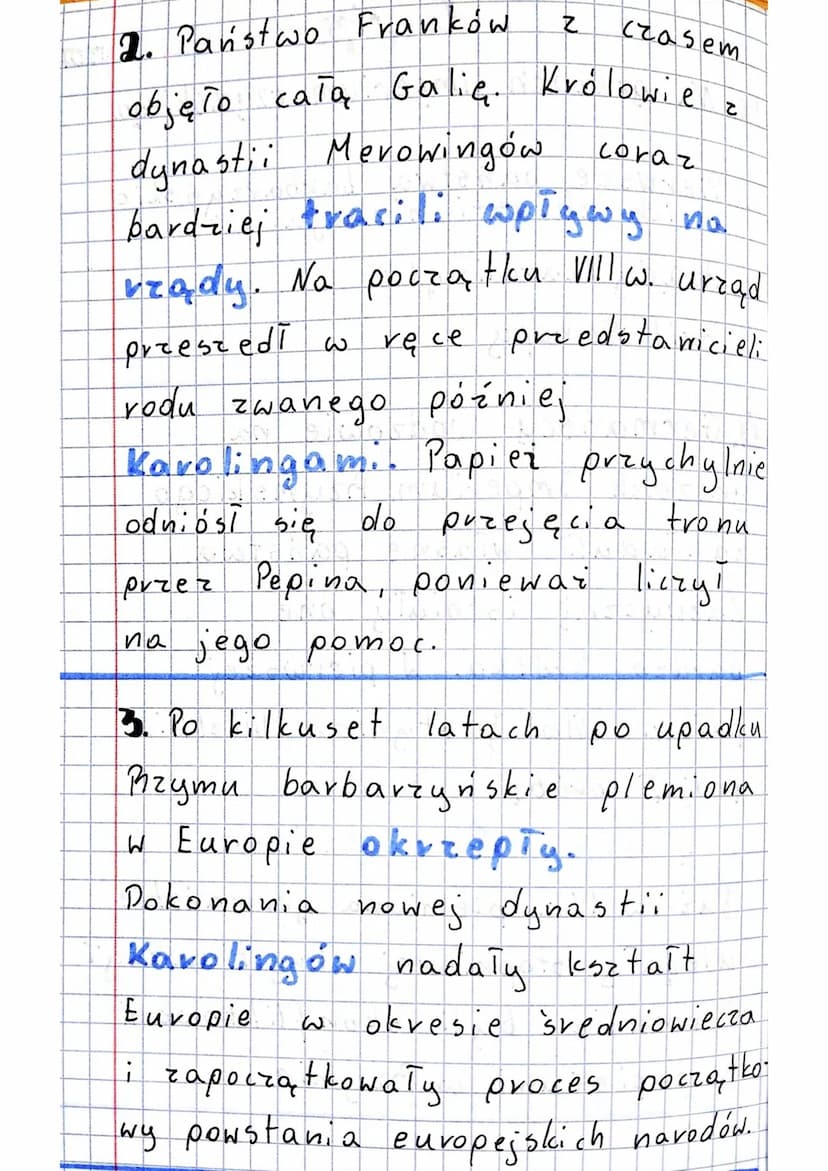 2. Państwo Franków z czasem
objęło całą Galię. Królowie z
dynastii Merowingów coraz
bardziej tracili wpływy na
rządy. Na początku VIII w. urząd
przeszedł w ręce przedstawicieli
rodu zwanego później
Karolingami. Papież przychylnie
odniósł się do przejęcia tronu
przez Pepina, ponieważ liczył
na jego pomoc.
3. Po kilkuset latach po upadku
Rzymu barbarzyńskie plemiona
w Europie okrzepły.
Dokonania nowej dynastii
Karolingów nadały kształt
Europie w okresie średniowiecza
i zapoczątkowały proces początko-
wy powstania europejskich narodów.